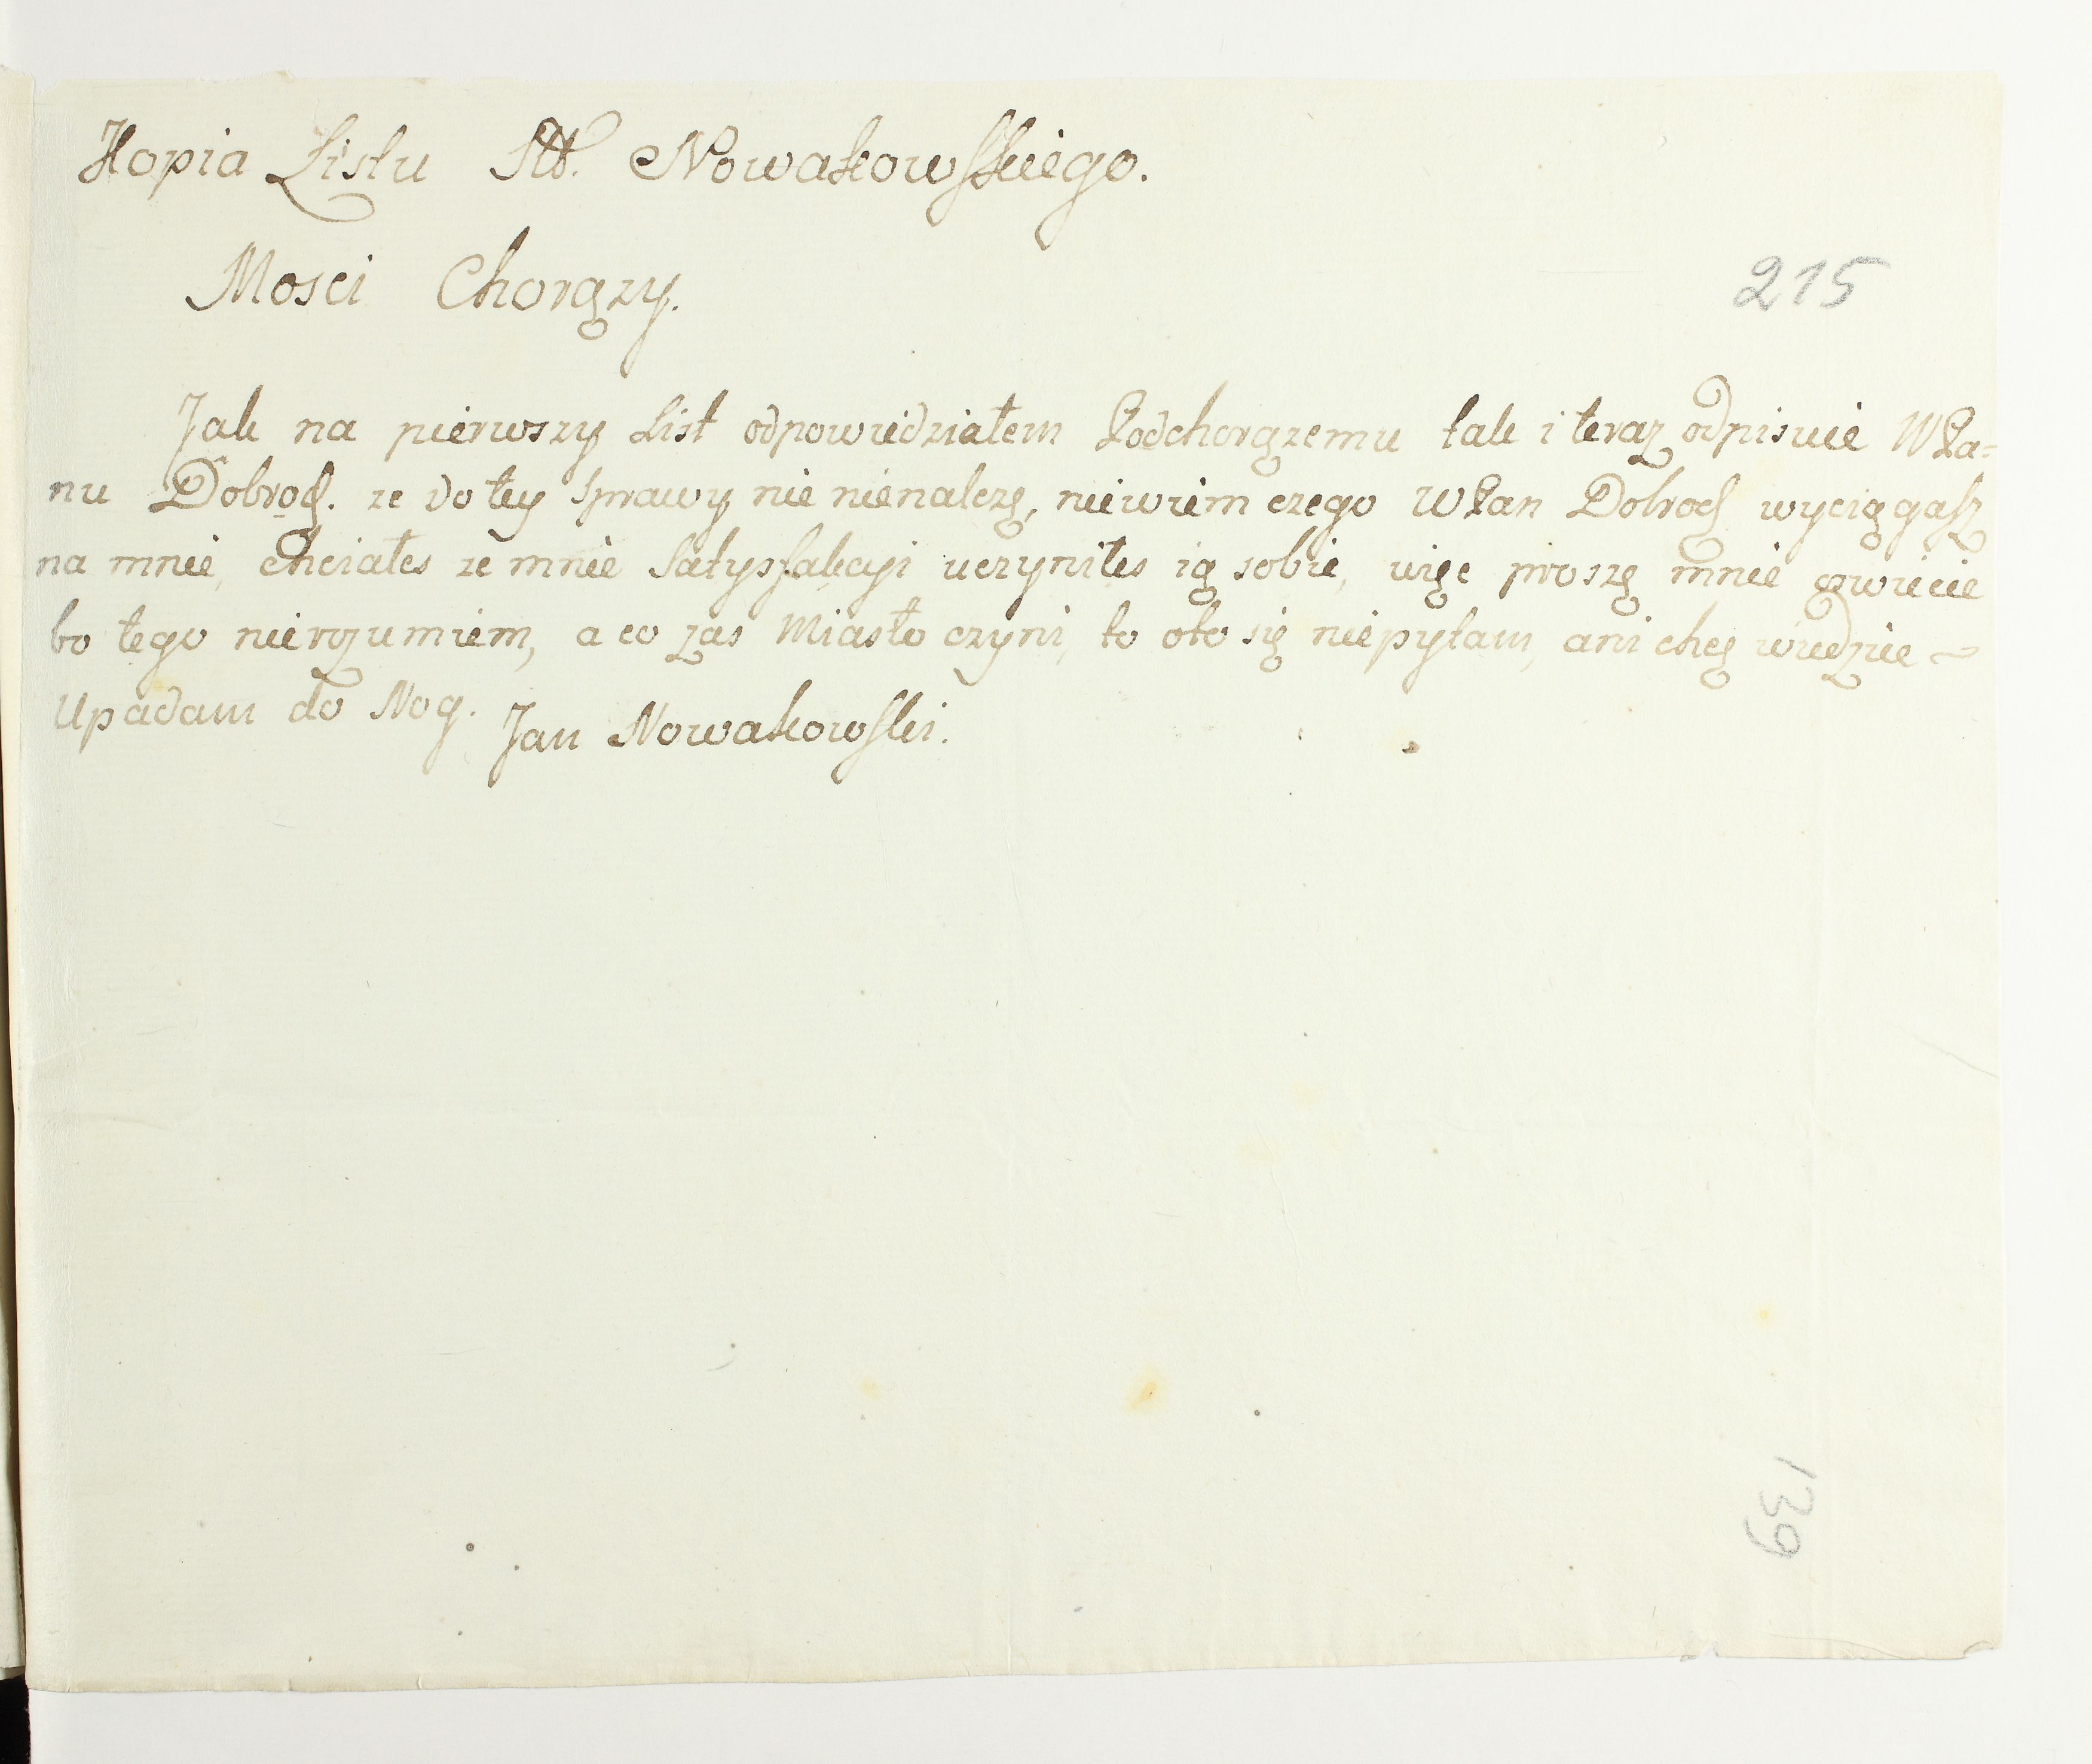 Kopia Listu Nowakowskiego.
Mosci Chorązy.
215
Jak na pierwszy List odpowiedziałem Podchorązemu tak i teraz odpisuie WPa=
nu Dobrodz. ze do tey Sprawy nic nienalezę, niewiem czego WPan Dobrodz wyciągasz
na mnie, chciałes ze mnie Satysfakcyi uczyniłes ią sobie, więc proszę mnie
bo tego nierozumiem, a co zas Miasto czyni, to oto się niepytam, ani chcę wiedzie ~
Upadam do Nog. Jan Nowakowski.
139